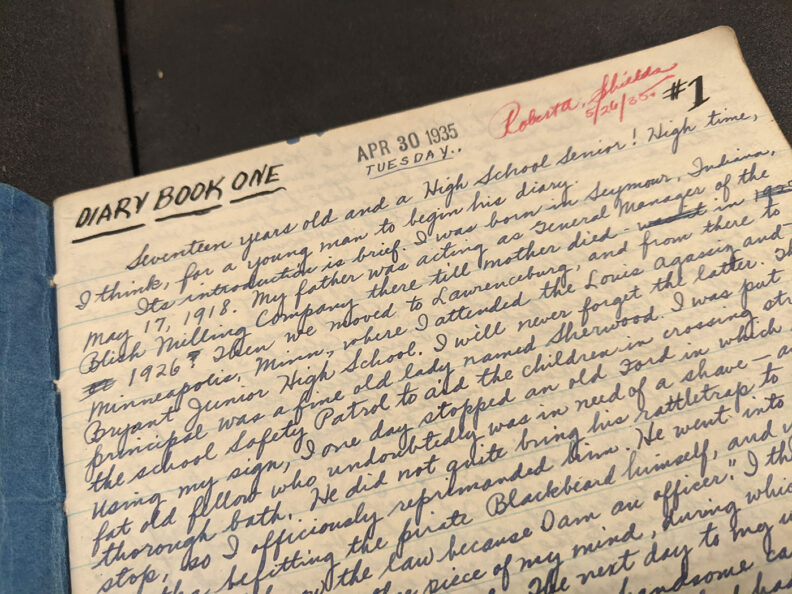 Roberta Shields
5/26/35.
#1
APR 30 1935
TUESDAY..
DIARY BOOK ONE
Seventeen years old and a High School Senior! High time,
I think, for a young man to begin his diary.
Its introduction is brief. I was born in Seymour, Indiana,
May 17, 1918. My father was acting as General Manager of the
Blish Milling Company there till mother died - in
1926? Then we moved to Lawrenceburg, and from there to
Minneapolis, Minn, where I attended the Louis Agassiz and
Bryant Junior High School. I will never forget the latter.
principal was a fine old lady named Sherwood. I was put
the school Safety Patrol to aid the children in crossing
Using my sign, I one day stopped an old Ford in which
fat old fellow who undoubtidly was in need of a shave —
thorough bath. He did not quite bring his rattletrap to
stop, so I officiously reprimanded him. He went into
befitting the pirate Blackbeard himself, and
the law because I am an officer." I
piece of my mind, during
The next day to my
handsome